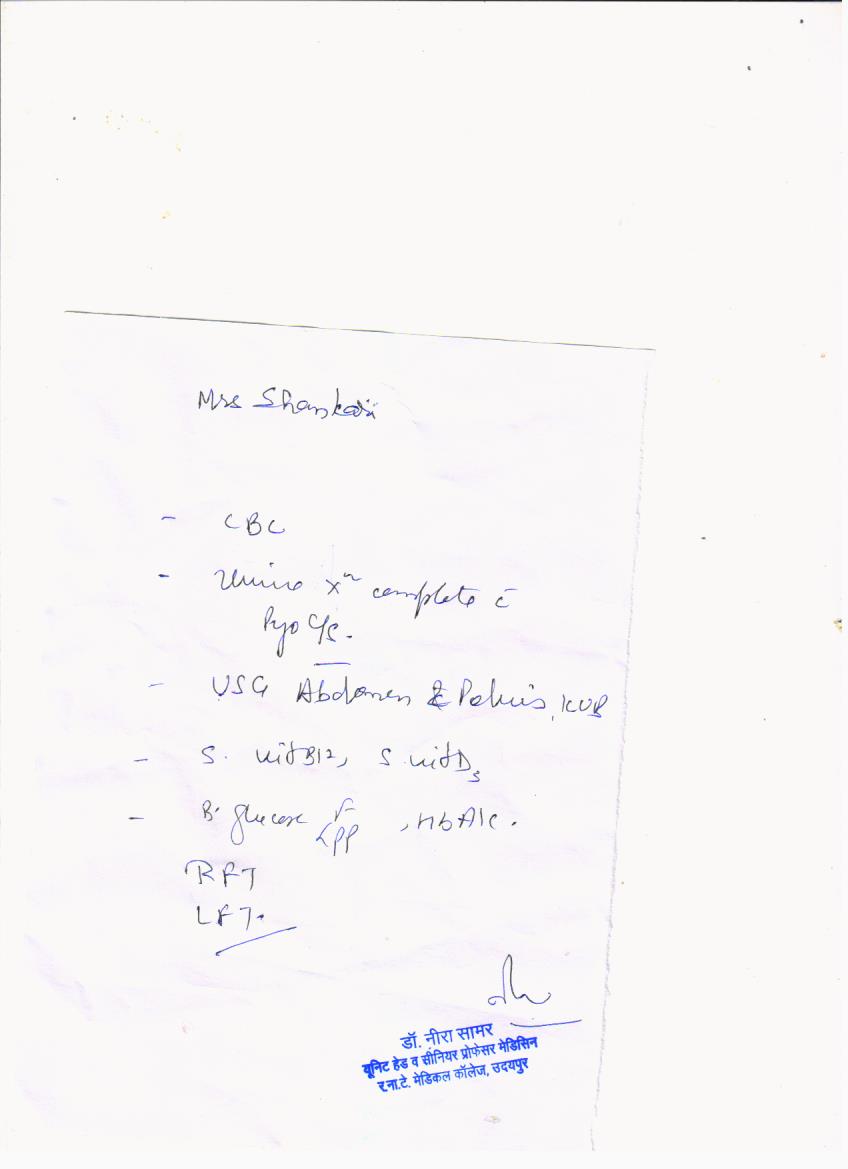 Mrs Shankari
- CBC
- Urine xn complete c̄
Pyo C/S.
- USG Abdomen & Pelvis, KUB
- S. vitB12, S. vitD3
- B. glucose F , HbA1c.
PP
RFT
LFT.
डॉ. नीरा सामर
यूनिट हेड व सीनियर प्रोफेसर मेडिसिन
र.ना.टे. मेडिकल कॉलेज, उदयपुर